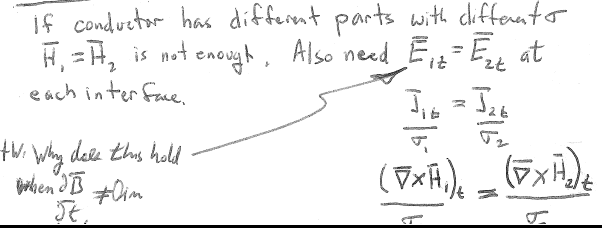 If conductor has different parts with different σ
H̅₁ = H̅₂ is not enough. Also need E̅₁ₜ = E̅₂ₜ at
each interface.
J̅₁ₜ/σ₁ = J̅₂ₜ/σ₂
HW: Why does this hold
when ∂B̅/∂t ≠ 0 in
(∇̅×H̅₁)ₜ/σ = (∇̅×H̅₂)ₜ/σ